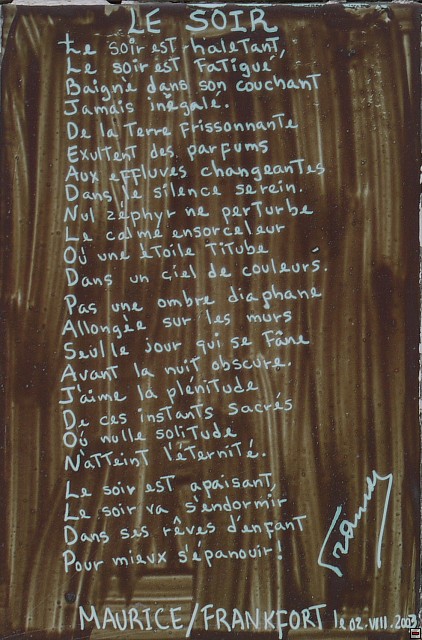 LE SOIR
Le soir est haletant,
Le soir est fatigué
Baigné dans son couchant
Jamais inégalé.
De la terre frissonnante
Exultent des parfums
Aux effluves changeantes
Dans le silence serein.
Nul zéphyr ne perturbe
Le calme ensorceleur
Où une étoile titube
Dans un ciel de couleurs.
Pas une ombre diaphane
Allongée sur les murs
Seul le jour qui se fâne
Avant la nuit obscure.
J'aime la plénitude
De ces instants sacrés
Où nulle solitude
N'atteint l'éternité.
Le soir est apaisant,
Le soir va s'endormir
Dans ses rêves d'enfant
Pour mieux s'épanouir!
MAURICE/FRANKFORT le 02.VIII.2003